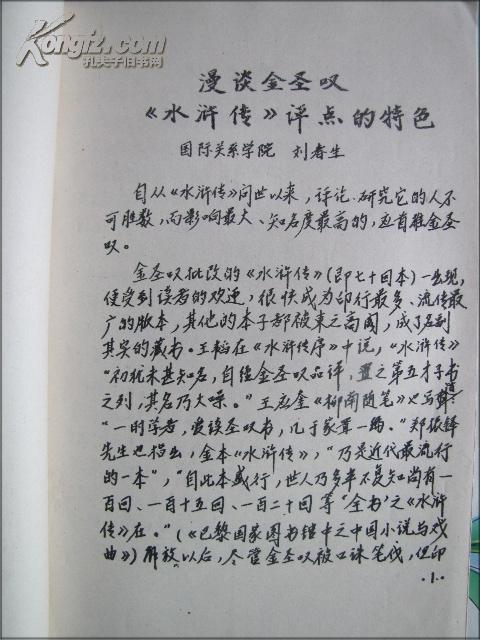 Kongfz.com
孔夫子旧书网
漫谈金圣叹
《水浒传》评点的特色
国际关系学院 刘春生
自从《水浒传》问世以来，评论、研究它的人不
可胜数，而影响最大、知名度最高的，应首推金圣
叹。
金圣叹批改的《水浒传》（即七十回本）一出现，
便受到读者的欢迎，很快成为印行最多、流传最
广的版本，其他的本子都被束之高阁，成了名副
其实的藏书。王韬在《水浒传序》中说，《水浒传》
“初犹未甚知名，自经金圣叹品评，置之第五才子书
之列，其名乃大噪。”王应奎《柳南随笔》也写道：
“一时学者，爱读圣叹书，几于家置一编。”郑振铎
先生也指出，金本《水浒传》，“乃是近代最流行
的一本”，“自此本盛行，世人乃多半不复知尚有一
百回、一百十五回、一百二十回等“全书”之《水浒
传》在。”（《巴黎国家图书馆中之中国小说与戏
曲》）解放以后，尽管金圣叹被口诛笔伐，但印
·1·